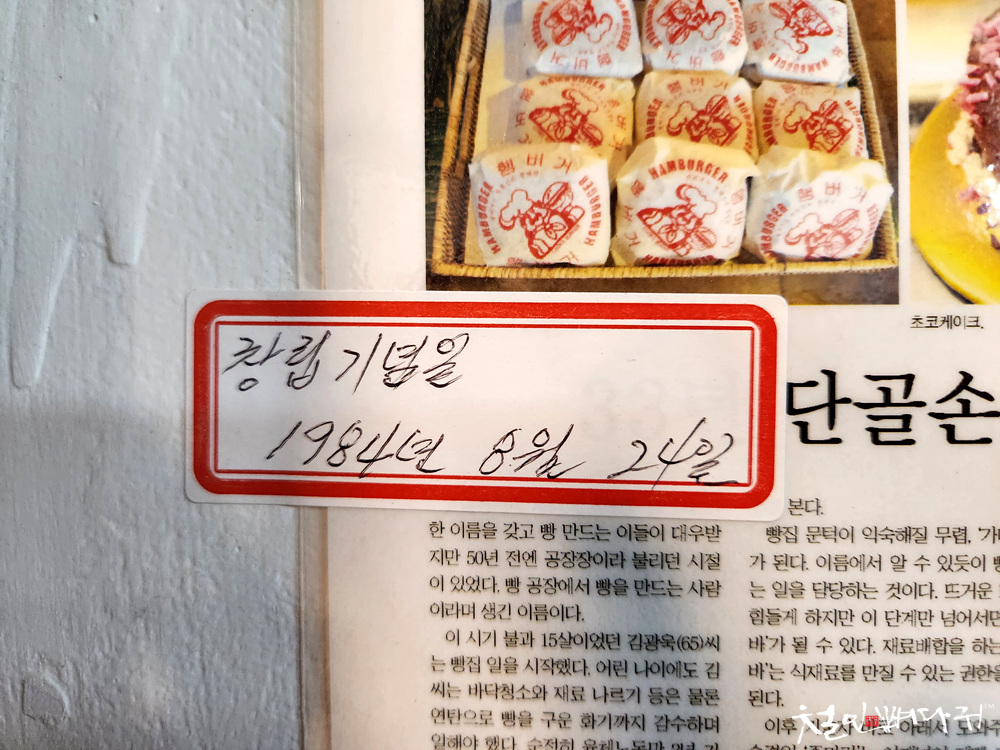 햄버거
HAMBURGER
HAMBURGER
햄버거
HAMBURGER
초코케이크.
창립기념일
1984년 8월 24일
단골손
한 이름을 갖고 빵 만드는 이들이 대우받
지만 50년 전엔 공장장이라 불리던 시절
이 있었다. 빵 공장에서 빵을 만드는 사람
이라며 생긴 이름이다.
이 시기 불과 15살이었던 김광욱(65)씨
는 빵집 일을 시작했다. 어린 나이에도 김
씨는 바닥청소와 재료 나르기 등은 물론
연탄으로 빵을 구운 화기까지 감수하며
일해야 했다.
본다.
빵집 문턱이 익숙해질 무렵,
가 된다. 이름에서 알 수 있듯이
는 일을 담당하는 것이다. 뜨거운
힘들게 하지만 이 단계만 넘어서면
바'가 될 수 있다. 재료배합을 하는
바'는 식재료를 만질 수 있는 권한을
된다.